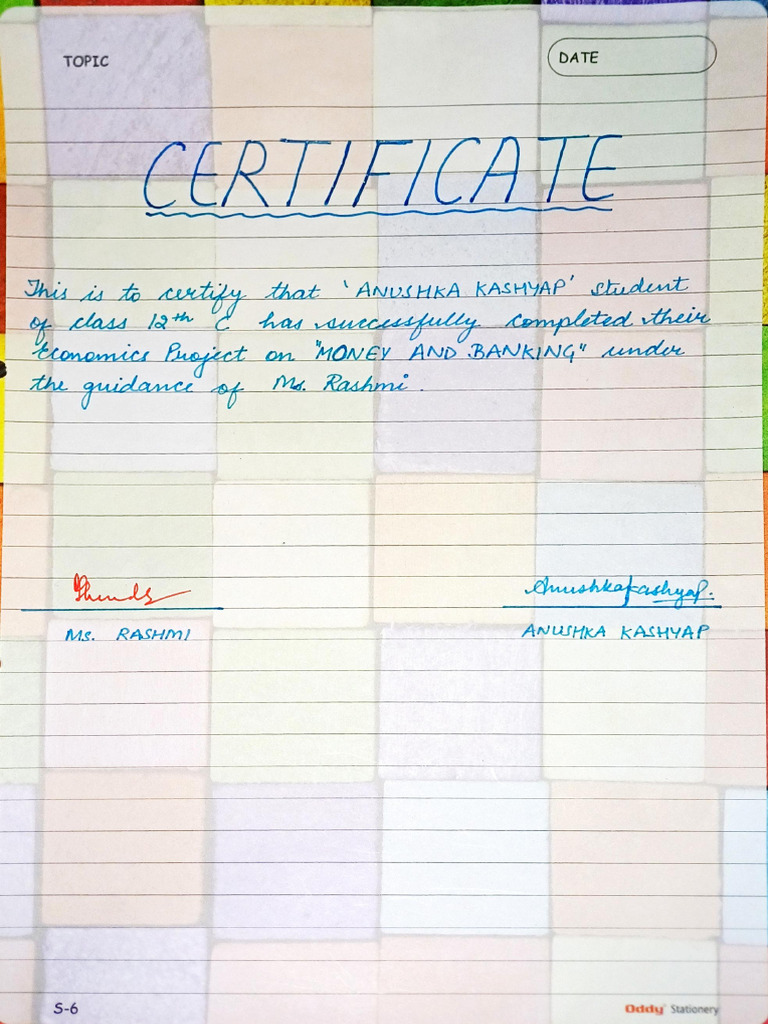 TOPIC
DATE
CERTIFICATE
This is to certify that 'ANUSHKA KASHYAP' student
of class 12th C has successfully completed their
Economics Project on "MONEY AND BANKING" under
the guidance of Ms. Rashmi.
Anushka Kashyap.
MS. RASHMI
ANUSHKA KASHYAP
S-6
Oddy Stationery